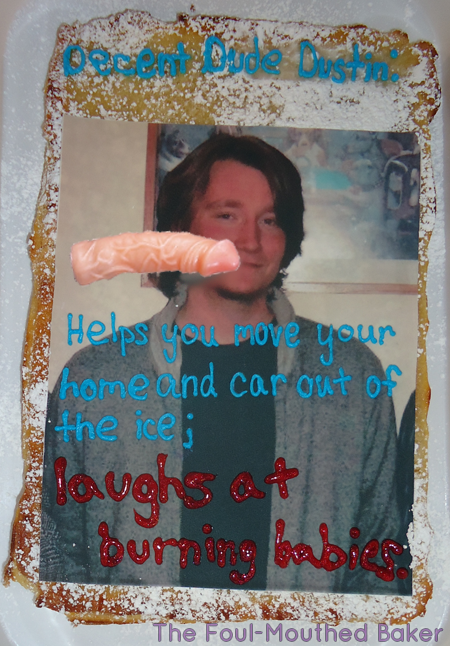 Decent Dude Dustin:
Helps you move your
home and car out of
the ice;
laughs at
burning babies.
The Foul-Mouthed Baker